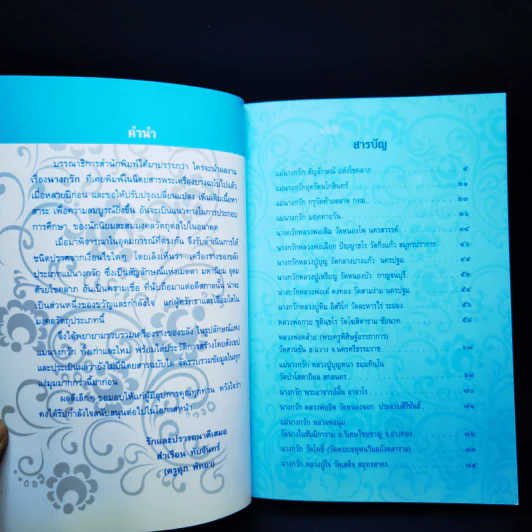 คำนำ
บรรณาธิการสำนักพิมพ์ได้มาปรารภว่า ใคร่จะนำผลงาน
เรื่องนางกวัก ที่เคยพิมพ์ในนิตยสารพระเครื่องบางฉบับไปแล้ว
เมื่อหลายปีก่อน และขอให้ปรับปรุงเปลี่ยนแปลง เพิ่มเติมเนื้อหา
สาระ เพื่อความสมบูรณ์ยิ่งขึ้น อันจะเป็นแนวทางในการประกอบ
การศึกษา ของนักนิยมสะสมมงคลวัตถุต่อไปในอนาคต
เมื่อมาพิจารณาในอุดมการณ์ที่ตรงกัน จึงรับดำเนินการให้
ชนิดปราศจากเงื่อนไขใดๆ โดยเล็งเห็นว่า เครื่องรางของขลัง
ประเภทแม่นางกวัก ซึ่งเป็นสัญลักษณ์แห่งเมตตา มหานิยม อุดม
ด้วยโชคลาภ อันเป็นความเชื่อ ที่นับถือมาแต่อดีตกาลนั้น น่าจะ
เป็นส่วนหนึ่งของขวัญและกำลังใจ แก่ผู้รักษาและเลื่อมใสใน
มงคลวัตถุประเภทนี้
จึงได้พยายามรวบรวมเครื่องรางของขลัง ในรูปลักษณ์แห่ง
แม่นางกวัก ทั้งเก่าและใหม่ พร้อมใส่ประวัติการสร้างโดยสังเขป
และประเมินผลว่ายังไม่มีนิตยสารฉบับใด จัดรวบรวมข้อมูลในทุก
แง่มุมมากกว่านี้มาก่อน
ผลดีเล็กๆ ขอมอบให้แก่ผู้มีอุปการคุณทุกท่าน หวังใจว่า
คงได้รับกำลังใจสนับสนุนต่อไปในโอกาสหน้า
รักและปรารถนาดีเสมอ
สำเรียน ทับจันทร์
(ครูดุก พัทยา)
สารบัญ
แม่นางกวัก สัญลักษณ์ แห่งโชคลาภ ๕
แม่นางกวักยุครัตนโกสินทร์ ๒๑
แม่นางกวัก กรุวัดท้ายตลาด กทม. ๒๖
แม่นางกวัก มฤตทายวัน
นางกวักหลวงพ่อเดิม วัดหนองโพ นครสวรรค์
นางกวักหลวงพ่อเผือก ปัญญาธโร วัดกิ่งแก้ว สมุทรปราการ
นางกวักหลวงปู่บุญ วัดกลางบางแก้ว นครปฐม
นางกวักหลวงปู่เหรียญ วัดหนองบัว กาญจนบุรี
นางกวักหลวงพ่อแช่ คงทอง วัดสามง่าม นครปฐม
นางกวักหลวงปู่ทิม อิสริโก วัดละหารไร่ ระยอง
หลวงพ่อกวย ชุตินธโร วัดโฆสิตาราม ชัยนาท
หลวงพ่อคล้าย (พระครูพิศิษฐ์อรรถการ)
วัดสวนขัน อ.ฉวาง จ.นครศรีธรรมราช
แม่นางกวัก หลวงปู่บุญหนา ธมฺมทินโน
วัดป่าโสตถิผล สกลนคร
นางกวัก พระอาจารย์ฝั้น อาจาโร
นางกวัก หลวงพ่อยิด วัดหนองจอก ประจวบคีรีขันธ์
แม่นางกวัก หลวงพ่อนุ่ม
วัดนางในธัมมิการาม อ.วิเศษไชยชาญ จ.อ่างทอง ๗๒
นางกวัก วัดโพธิ์ (วัดพระเชตุพนวิมลมังคลาราม) ๗๓
นางกวัก หลวงปู่ใจ วัดเสด็จ สมุทรสาคร ๗๔